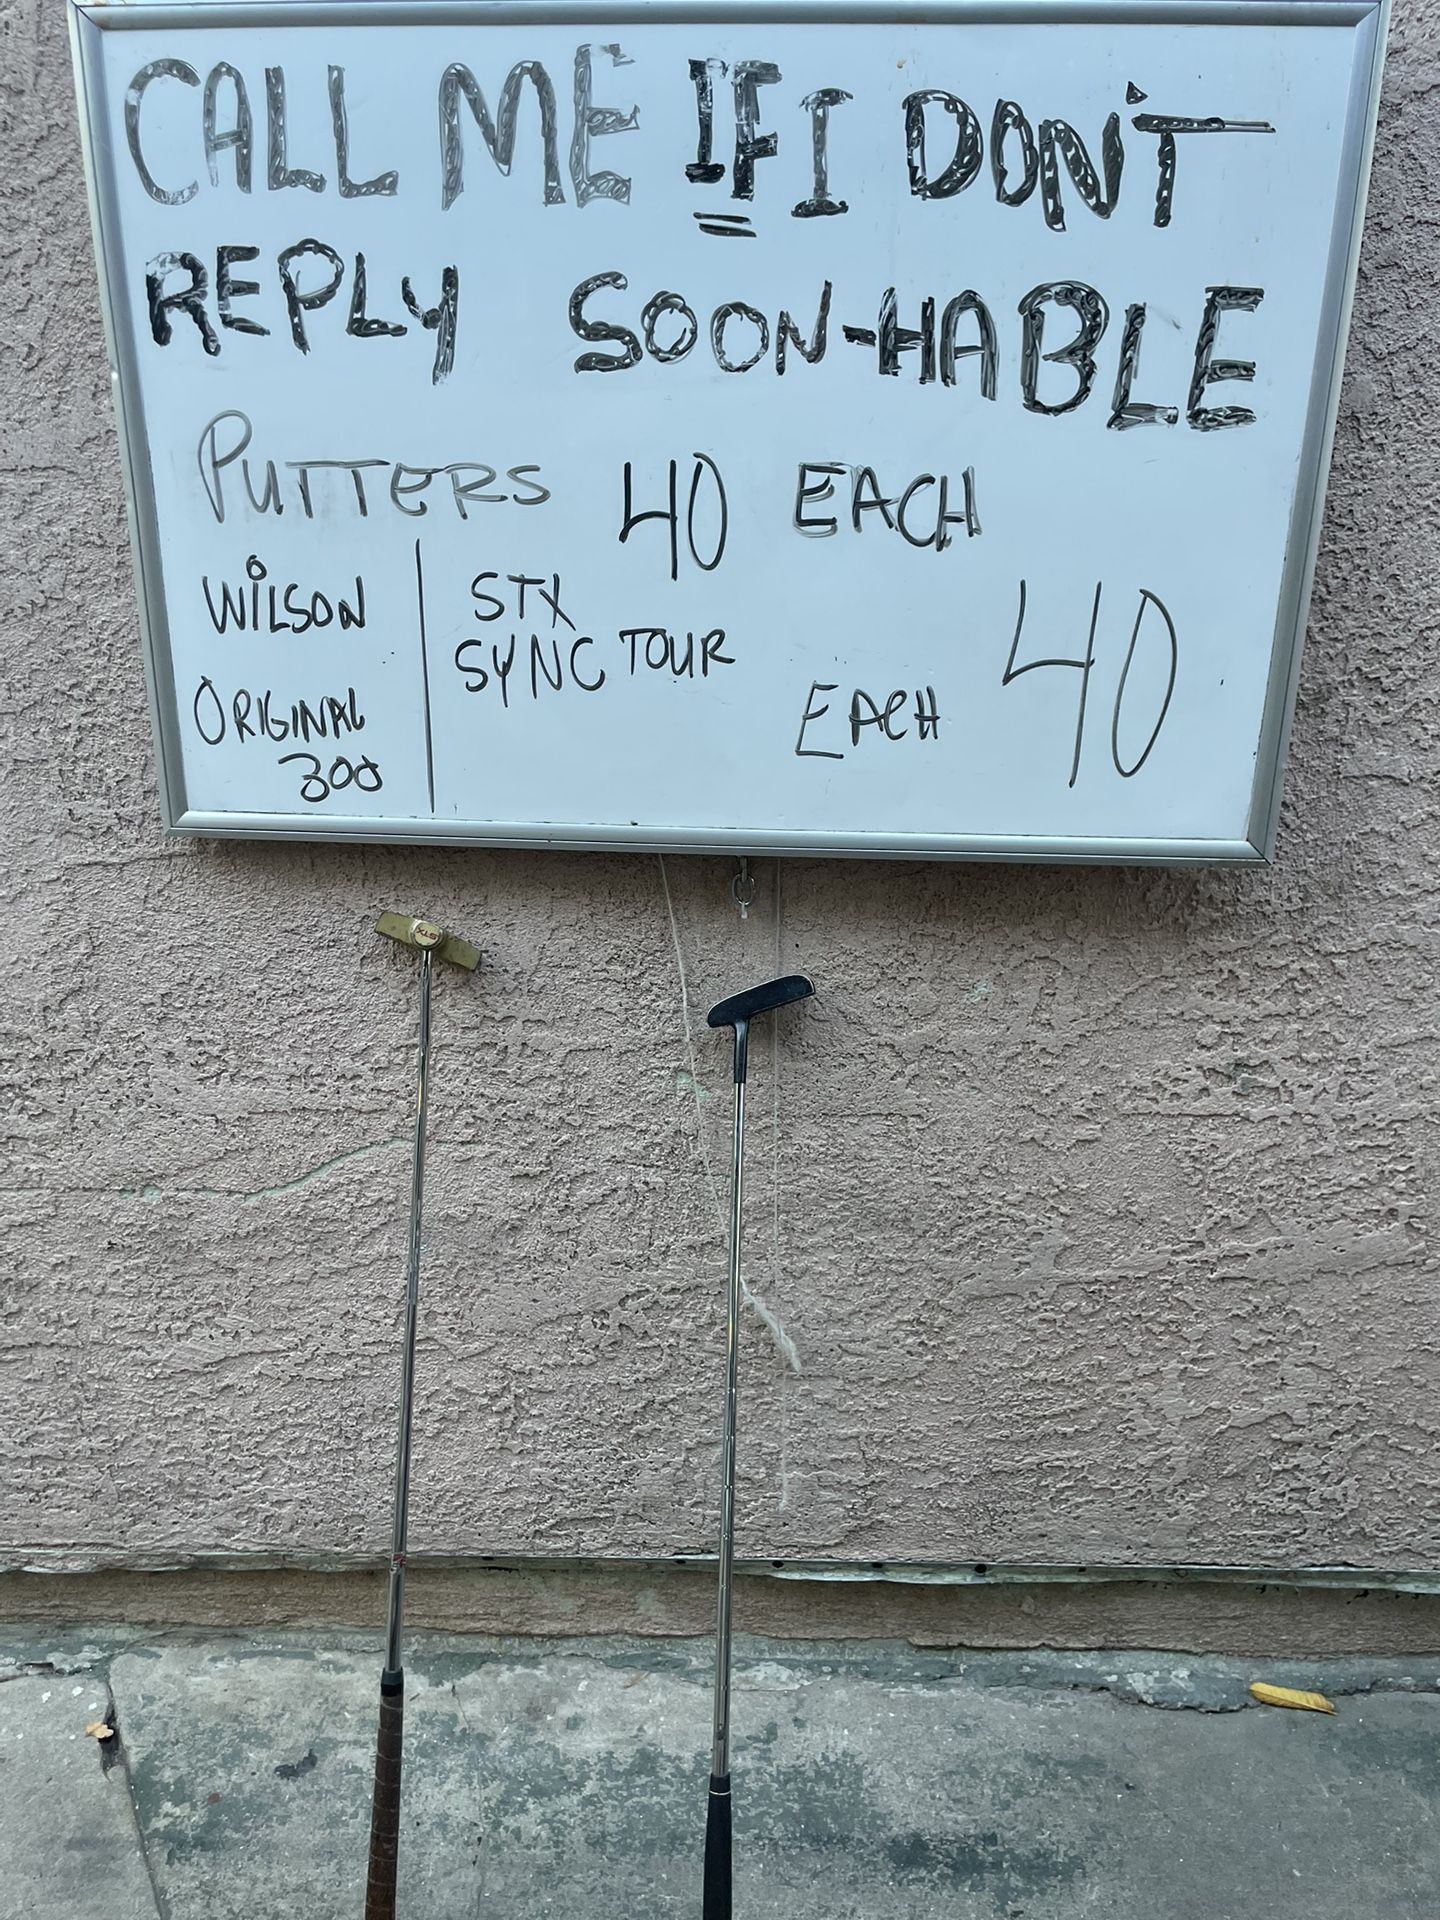 CALL ME IF I DON'T
REPLY SOON-HABLE
PUTTERS 40 EACH
WILSON
ORIGINAL
300
STX
SYNC TOUR
EACH 40
STX